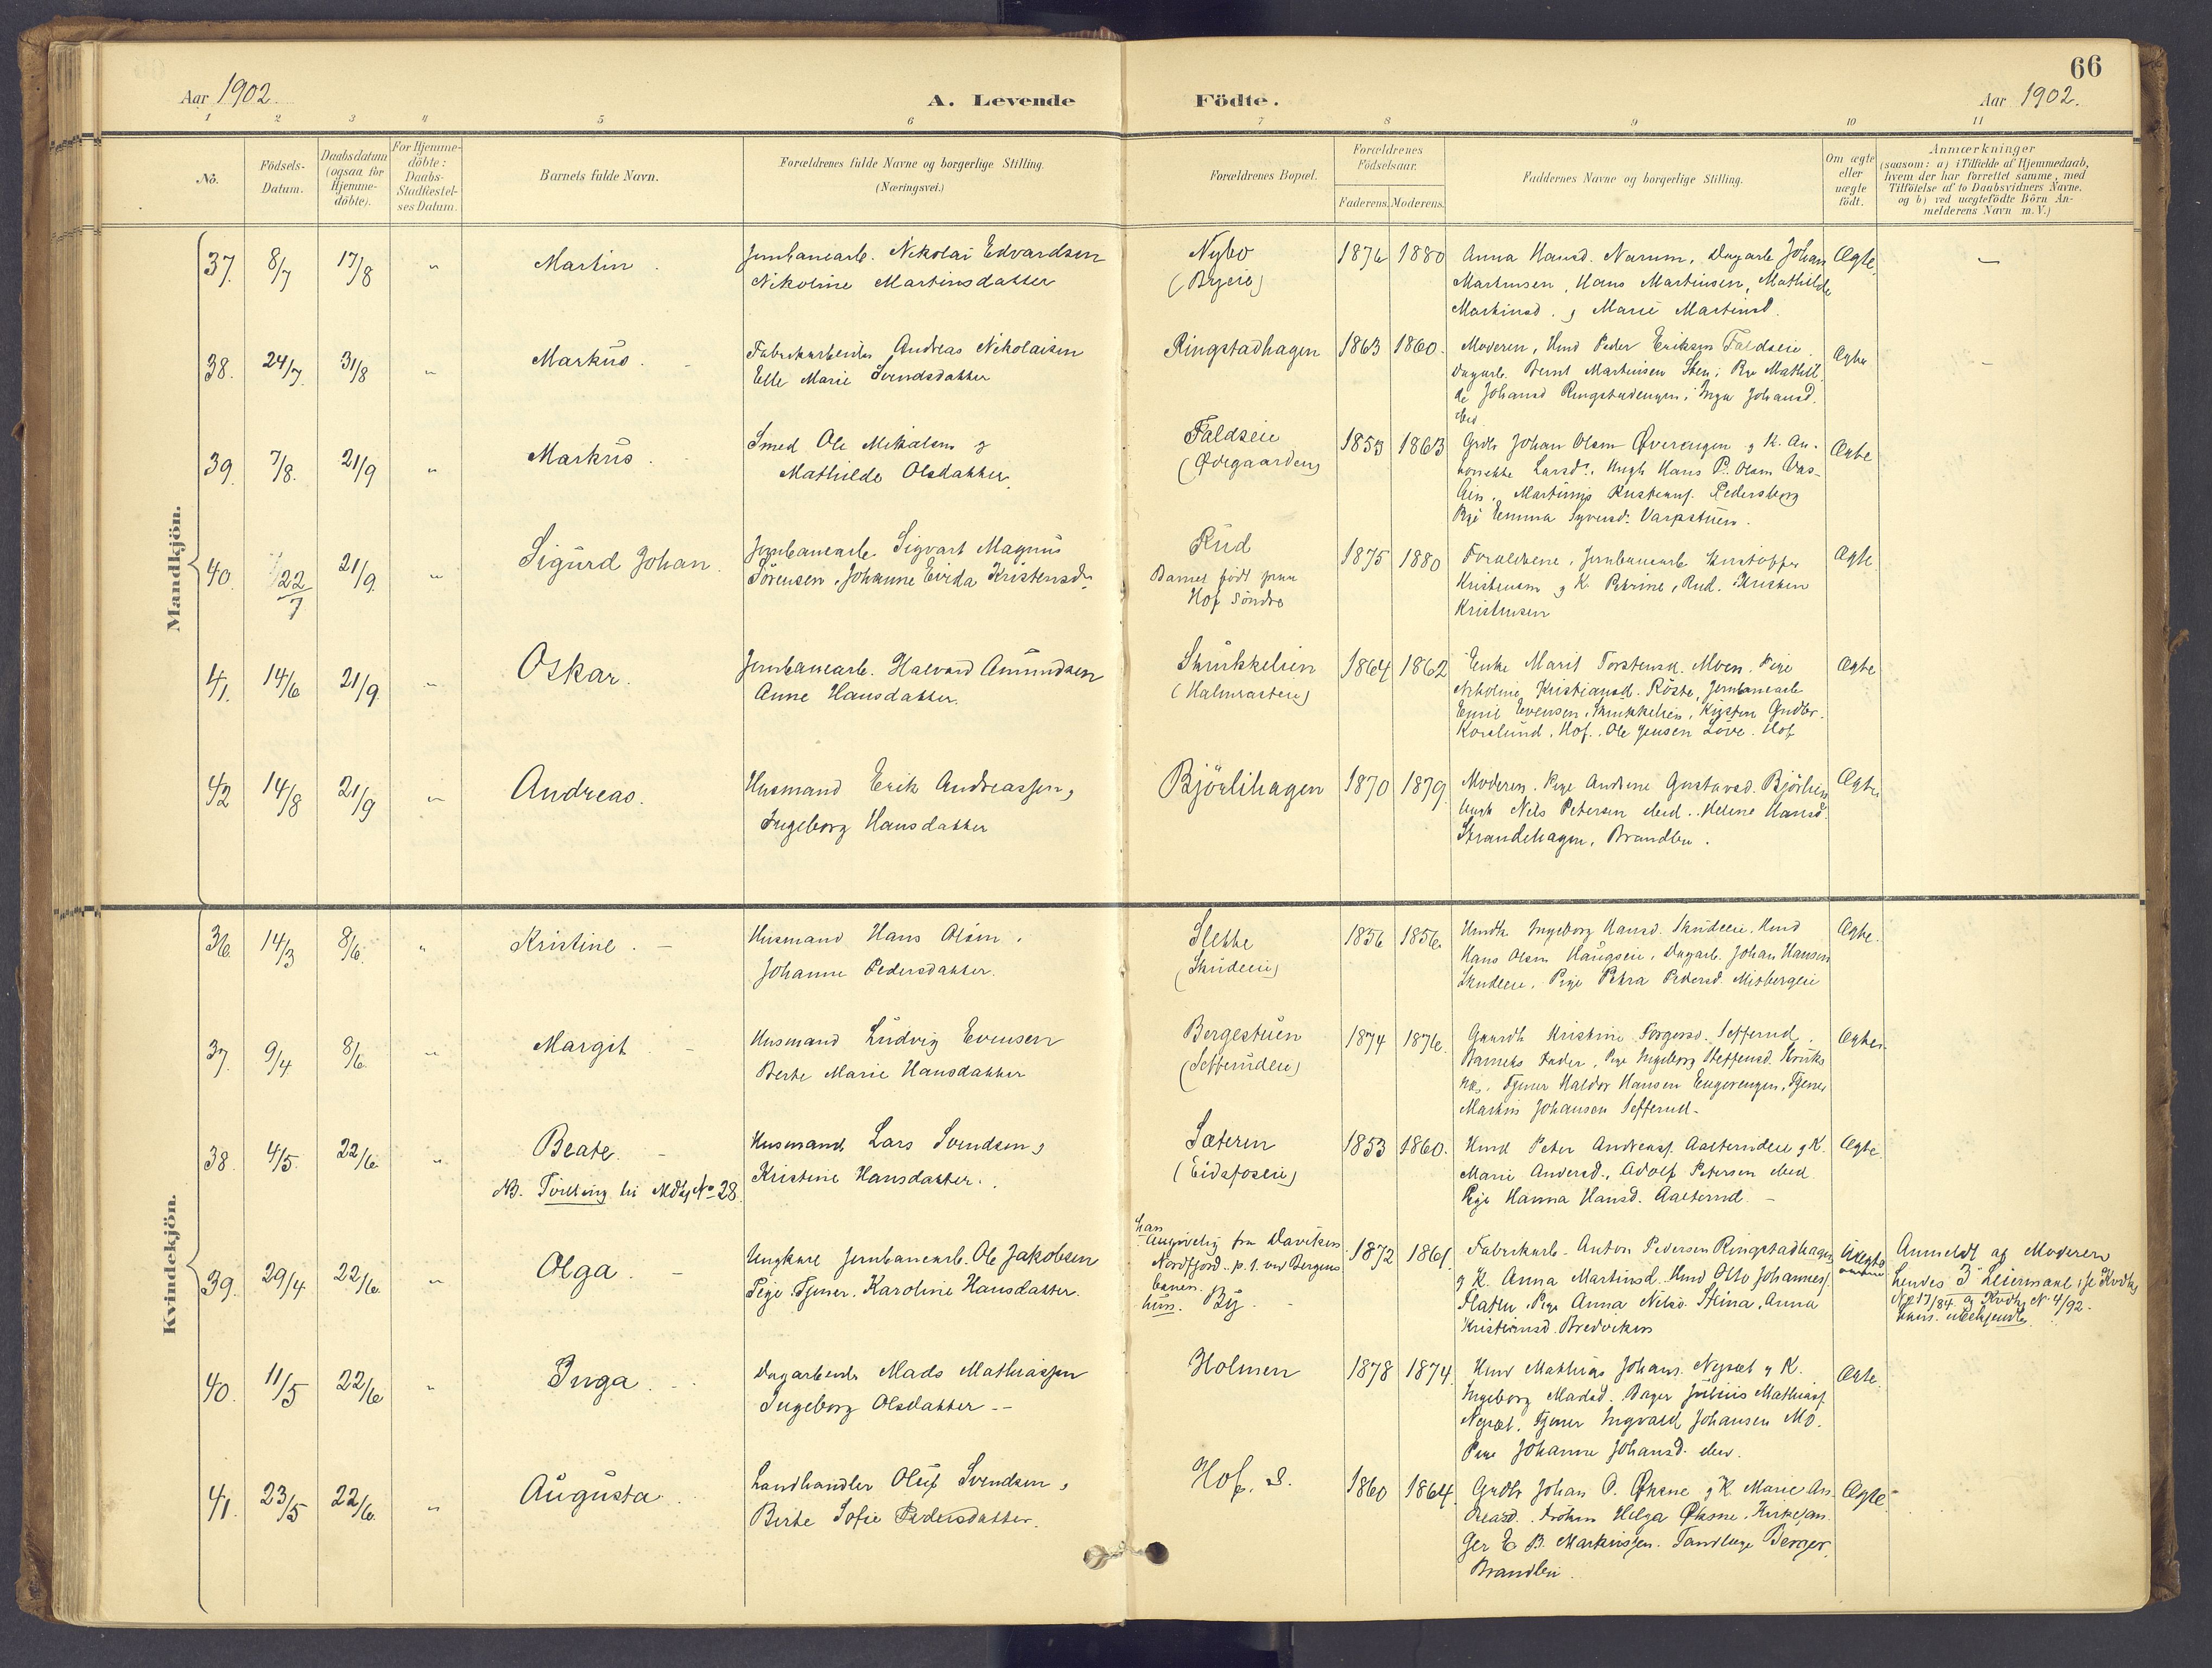 66
Aar 1902.
A. Levende Födte.
Aar 1902.
1 2 3 4 5 6 7 8 9 10 11
No.
Födsels-
Datum.
Daabsdatum
(ogsaa for
Hjemme-
döbte).
For Hjemme-
döbte:
Daabs-
Stadfæstel-
ses Datum.
Barnets fulde Navn.
Forældrenes fulde Navne og borgerlige Stilling.
(Næringsvei.)
Forældrenes Bopæl.
Forældrenes
Födselsaar.
Faderens. Moderens.
Faddernes Navne og borgerlige Stilling.
Om ægte
eller
uægte
födt.
Anmærkninger
(saasom: a) i Tilfælde af Hjemmedaab,
hvem der har forrettet samme, med
Tilföielse af to Daabsvidners Navne.
og b) ved uægtefödte Börn An-
melderens Navn m. V.)
Mandkjön.
37. 8/7 17/8 " Martin.
Jernbanearb. Nikolai Edvardsen
Nikoline Martinsdatter
Nybo
(Byeie)
1876 1880
Anna Hansd. Narum, Dagarb. Johan
Martinsen, Hans Martinsen, Mathilde
Martinsd. g Marie Martinsd.
Ægte.
—
38. 24/7. 31/8 " Markus.
Fabrikarbeider Andreas Nikolaisen
Elle Marie Svendsdatter
Ringstadhagen
1863 1860.
Moderen, Hmd Peder Eriksen Faldseie
Dagarb. Bernt Martinsen Sten; Pge Mathil
de Johansd Ringstadengen, Inga Johansd.
ibid
Ægte
39. 7/8. 21/9 " Markus.
Smed Ole Mikalsen g
Mathilde Olsdatter.
Faldseie
(Ödegaarden)
1853 1863
Grdbr Johan Olsen Øverengen g K. An-
tonette Larsdr., Ungk Hans P. Olsen
Pedersberg
Pge Emma Syversdr. Varpstuen.
Ægte
40. 22/7 21/9. " Sigurd Johan.
Jernbanearb. Sigvart Magnus
Sörensen, Johanne Kristensdr.
Rud
Barnet födt paa
Hof Söndre
1875 1880
Forældrene, Jernbanearb Kristoffer
Kristensen g K. Petrine, Rud. Kristen
Kristensen
Ægte
41. 14/6 21/9 " Oskar.
Jernbanearb. Halvard Amundsen
Anne Hansdatter.
Skrukkelien
1864 1862
Enke Marit Torstensd. Moen. Pige
Nikoline Kristiansd. Röste, Jernbanearb
Emil Evensen, Skrukkelien,
Korslund. Hof. Ole Jensen Hof
Ægte
42 14/8 21/9 " Andreas.
Husmand Erik Andreassen,
Ingeborg Hansdatter
Björlihagen
1870 1879
Moderen. Pige Andrine Gustavsd. Björlien
Ungk Nils Petersen ibid. Helene Hansd.
Strandehagen, Brandbu.
Ægte
Kvindekjön.
36. 14/3 8/6. " Kristine. —
Husmand Hans Olsen,
Johanne Pedersdatter.
Slette
(Skudeeie)
1856 1856.
Hmdk. Ingeborg Hansd. Skudeeie. Hmd
Hans Olsen Haugseie, Dagarb. Johan Hansen
Skudeeie, Pige Petra Pedersd. Misbergeie
Ægte.
37. 9/4 8/6. " Margit. —
Husmand Ludvig Evensen
Berte Marie Hansdatter
Bergestuen
(Sefferudeie)
1874 1876.
Gaardk Kristine Torgersd. Sefferud.
Barnets Fader, Pige Ingeborg Steffensd.
Tjener Haldor Hansen Engerengen, Tjener
Martin Johansen Sefferud.
Ægte
38. 4/5. 22/6 " Beate. —
NB. Tvilling til Mdkj No 28.
Husmand Lars Svendsen g
Kristine Hansdatter.
Sæteren
(Eidsfoseie)
1853 1860.
Hmd Peter Andreass. Aasterudeie g K.
Marie Andersd., Adolf Petersen ibid
Pige Hanna Hansd. Aasterud. —
Ægte.
39. 29/4. 22/6. " Olga. —
Ungkarl Jernbanearb. Ole Jakobsen
Pige Tjener. Karoline Hansdatter.
han
angivelig fra Daviken
Nordfjord. p. t. ved Bergens
banen.
hun. By.
1872 1861.
Fabrikarb. Anton Pedersen Ringstadhagen
g K. Anna Martinsd. Hmd Otto Johanness.
Flaten, Pige Anna Nilsd. Skina, Anna
Kristiansd. Bredviken
Uægte
Anmeldt af Moderen
hendes 3' Leiermaal, se Kvdkj
No 17/84 og Kvdkj N. 4/92.
hans. ubekjendt.
40. 11/5 22/6 " Inga.
Dagarbeider Mads Mathiassen
Ingeborg Olsdatter —
Holmen
1878 1874.
Hmd Mathias Johans. Nysæt g K.
Ingeborg Madsd. Bager Julius Mathiass.
Nysæt. Tjener Ingvald Johansen Mo.
Pige Johanne Johansd. ibid.
Ægte.
41. 23/5 22/6. " Augusta.
Landhandler Oluf Svendsen,
Berte Sofie Pedersdatter.
Hof. S.
1860 1864.
Grdbr Johan P. Øksne g K. Marie An-
dreasd. Fröken Helga Øksne. Kirkesan-
ger E. B. Martinsen. Tandlæge Berger,
Brandbu.
Ægte.